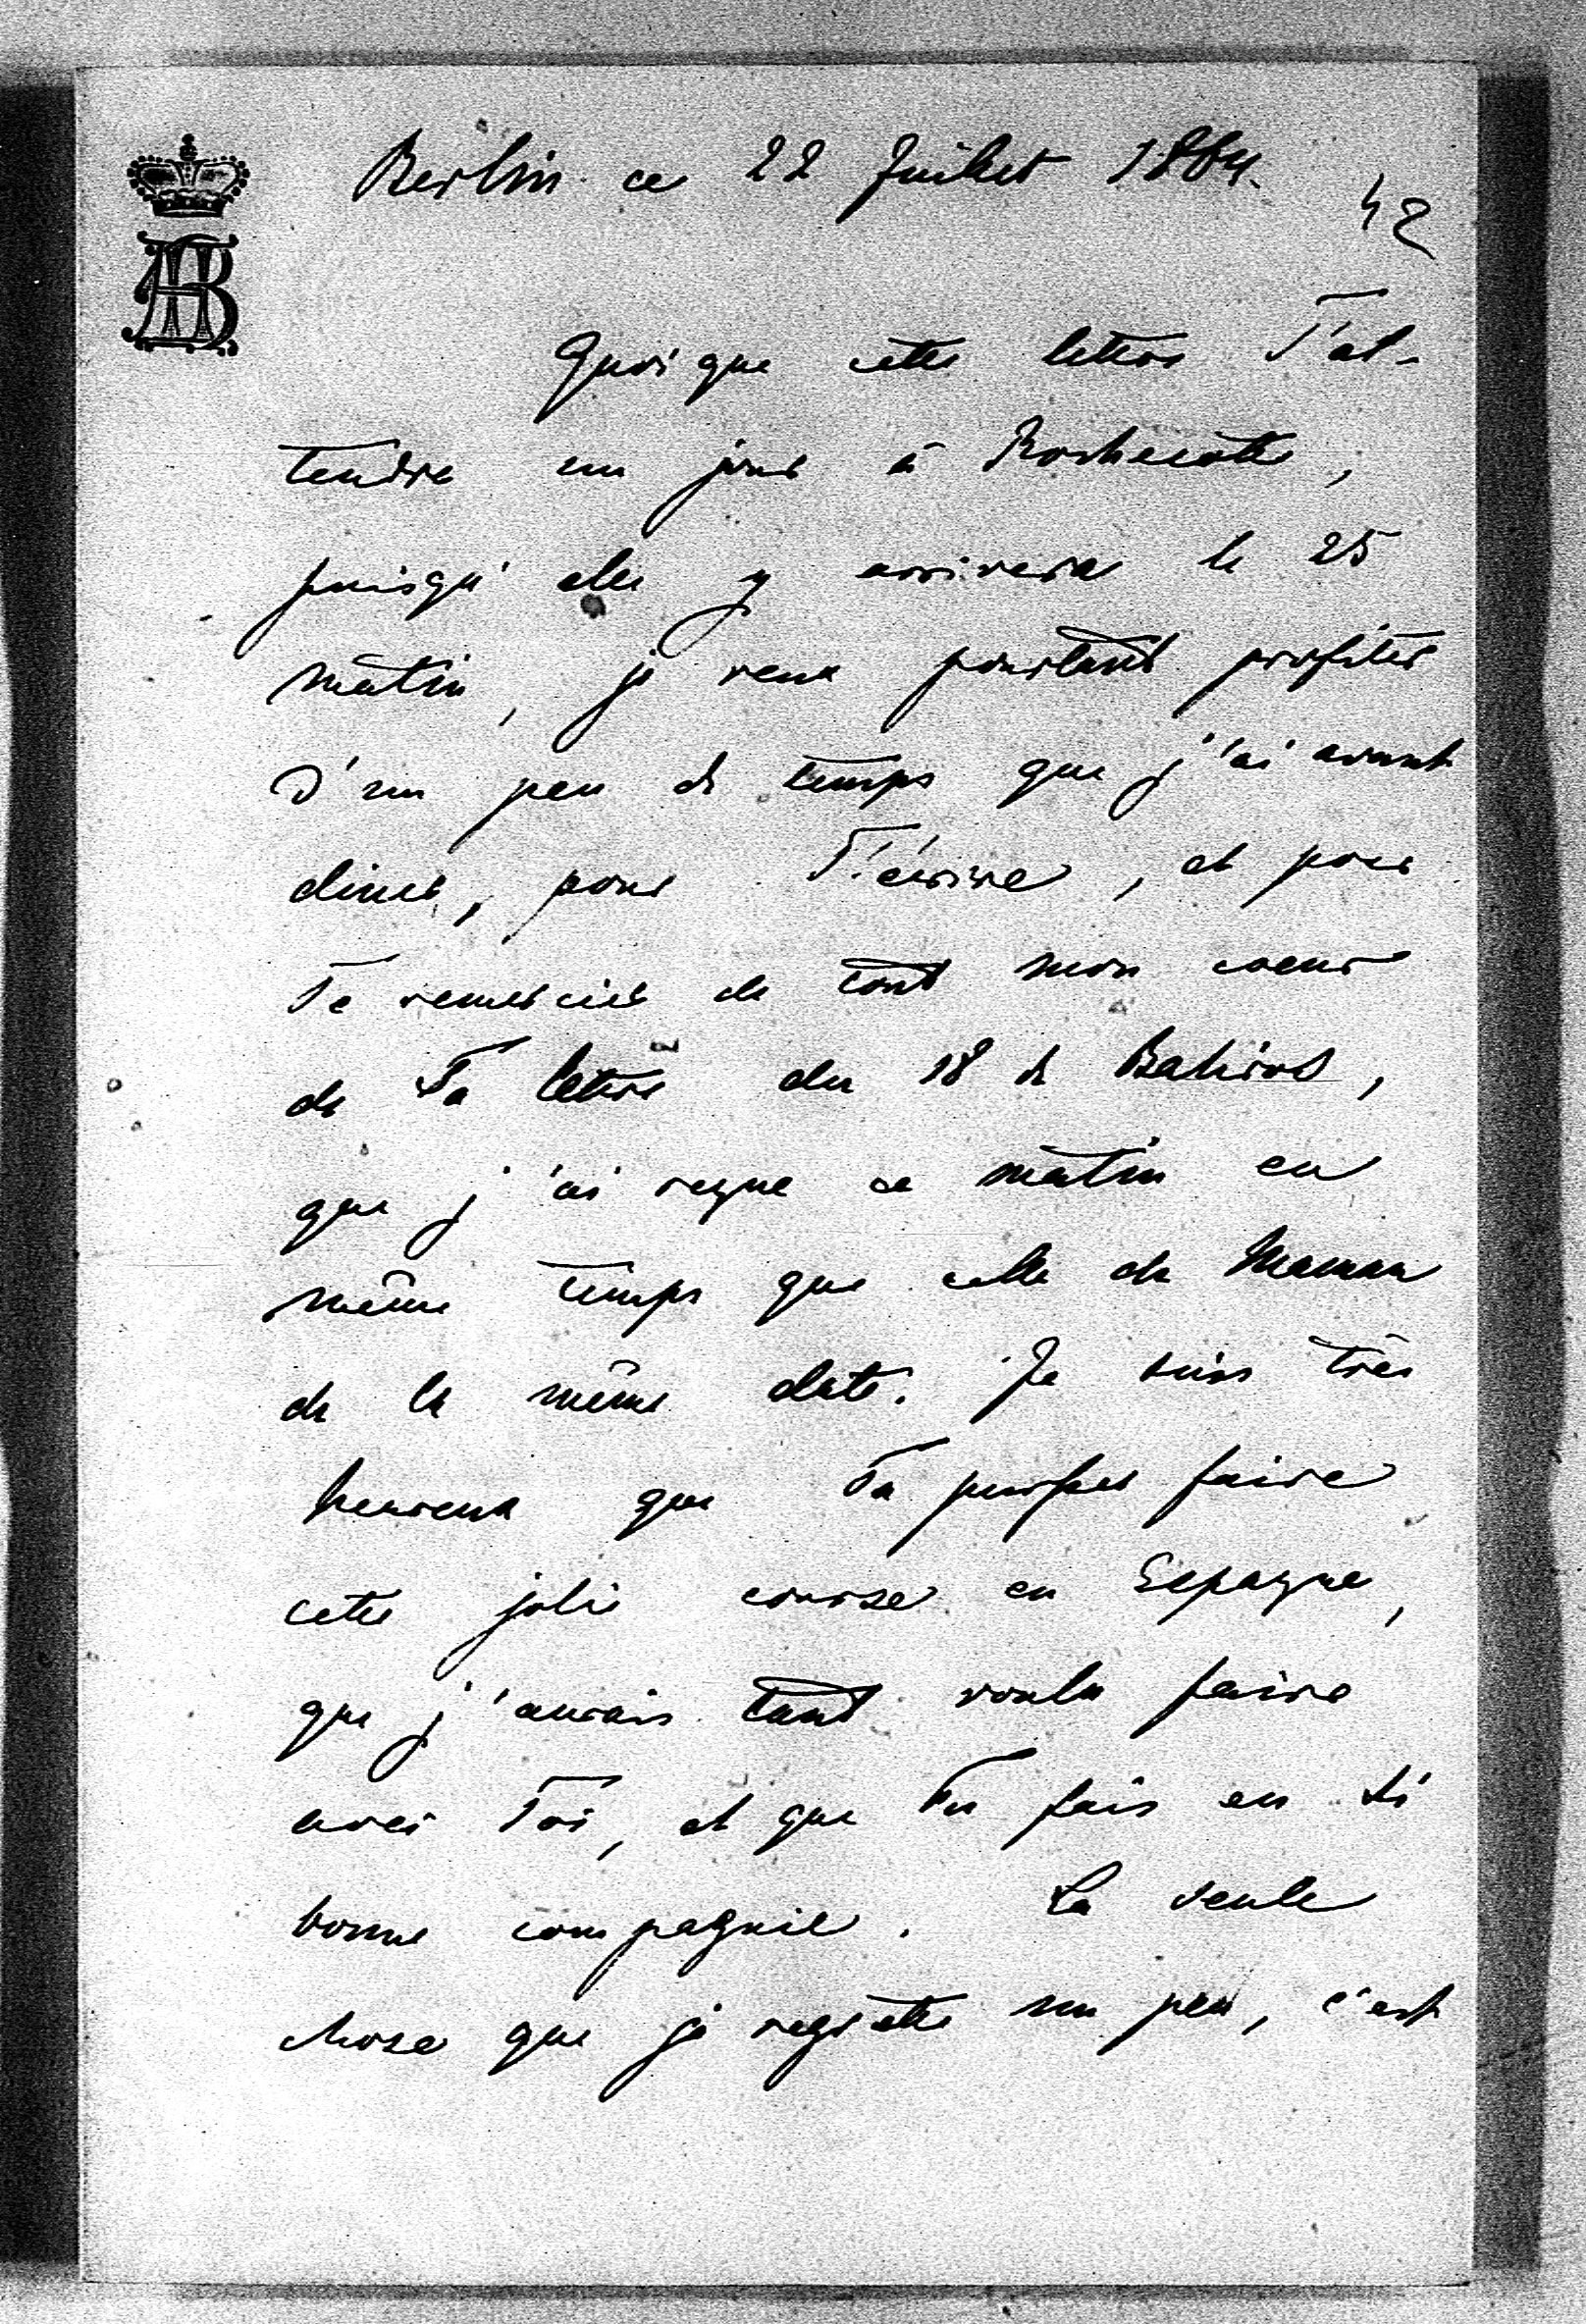 Berlin ce 22 Juillet 1884.
42
AB
Quoi que cette lettre T'at-
tendra un jour à Rochecotte,
puisqu'elle y arrivera le 25
matin, je veux pourtant profiter
d'un peu de temps que j'ai avant
diner, pour T'écrire, et pour
Te remercier de tout mon coeur
de Ta lettre du 18 de
que j'ai reçue ce matin en
même temps que celle de Maman
de la même date. Je suis très
heureux que Tu puisses faire
cette jolie course en Espagne,
que j'aurais tant voulu faire
avec Toi, et que Tu fais en si
bonne compagnie. La seule
chose que je regrette un peu, c'est